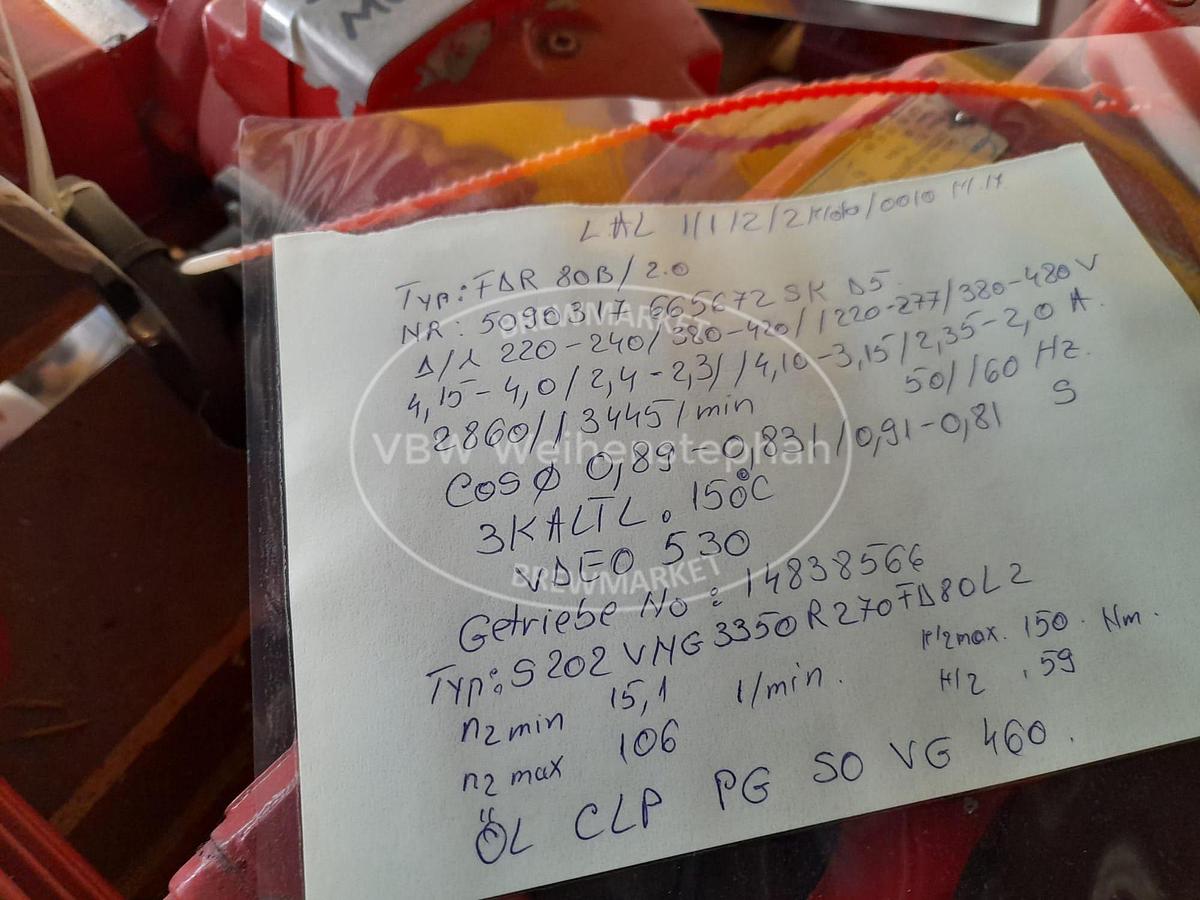 LAL 1/1/2/2 /0010 M.17
Typ: FDR 80B/2.0
NR: 5090317 665672 SK D5
Δ/λ 220-240/380-420//220-277/380-480V
4,15-4,0/2,4-2,3//4,10-3,15/2,35-2,0 A.
2860//3445/min 50//60 Hz.
COS φ 0,89-0,83//0,91-0,81 S
3KALTL. 150°C
VDEO 530
Getriebe No: 14838566
Typ: S202VNG3350R270FD80L2
n2min 15,1 1/min. max. 150. Nm.
n2 max 106 .59
ÖL CLP PG SO VG 460.
BREWMARKET
VBW Weihenstephan
BREWMARKET